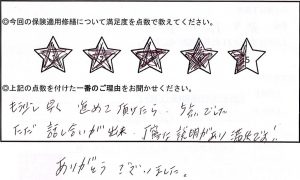 ◎今回の保険適用修繕について満足度を点数で教えてください。
5
◎上記の点数を付けた一番のご理由をお聞かせください。
もう少し早く 進めて頂けたら、5点でした
ただ 話し合いが出来、丁寧に説明があり満足です!
ありがとうございました。